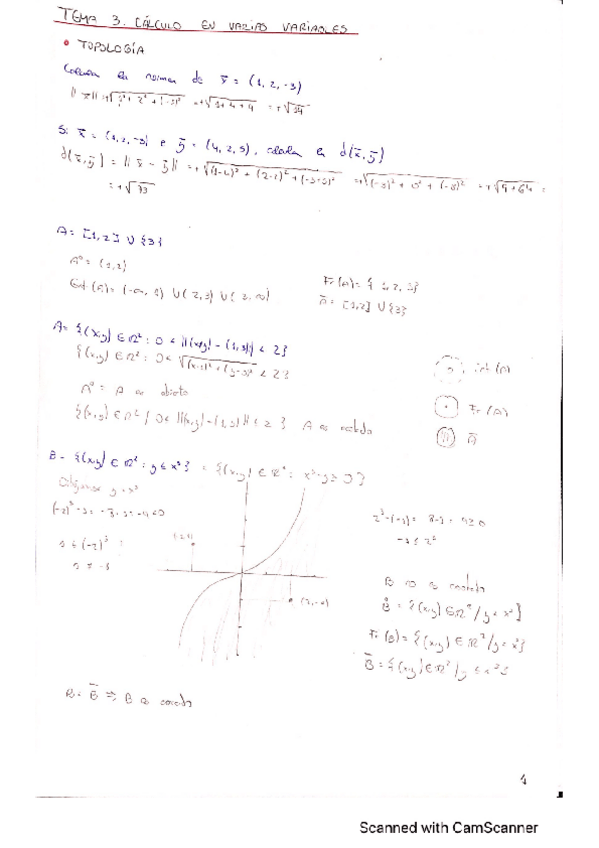 TEMA 3. CÁLCULO EN VARIAS VARIABLES
• TOPOLOGÍA
Calcula la norma de x̄ = (1, 2, -3)
= +√14
Si x̄ = (1, 2, -3) e ȳ = (4, 2, 5), calcula la d(x̄, ȳ)
d(x̄, ȳ) = ||x̄ - ȳ|| = +√(1-4)² + (2-2)² + (-3-5)² = +√(-3)² + 0² + (-8)² = +√9+64 =
= +√73
A = [1, 2] ∪ {3}
A° = (1,2)
Ext (A) = (-∞, 1) ∪ (2, 3) ∪ (3, ∞)
Fr (A) = {1, 2, 3}
Ā = [1,2] ∪ {3}
A = {(x,y) ∈ ℝ² : 0 < ||(x,y) - (1,3)|| < 2}
{(x,y) ∈ ℝ² : 0 < √(x-1)² + (y-3)² < 2}
A° = A es abierto
A es acotado
int (A)
Fr (A)
Ā
B = {(x,y) ∈ ℝ² : y ≤ x³} = {(x,y) ∈ ℝ² : x³-y ≥ 0}
Dibujamos y = x³
B no es acotado
B̊ = {(x,y) ∈ ℝ² / y < x³}
Fr (B) = {(x,y) ∈ ℝ² / y = x³}
B̄ = {(x,y) ∈ ℝ² / y ≤ x³}
B = B̄ ⇒ B es cerrado
4
Scanned with CamScanner